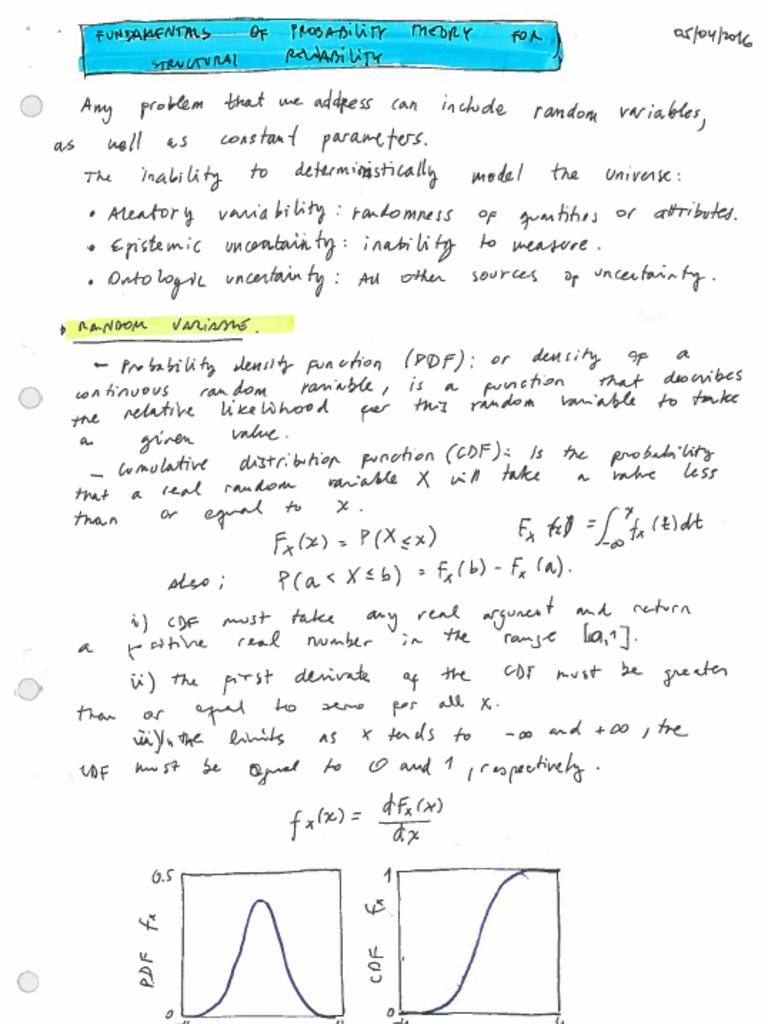 FUNDAMENTALS OF PROBABILITY THEORY FOR
STRUCTURAL RELIABILITY
05/04/2016
Any problem that we address can include random variables,
as well as constant parameters.
The inability to deterministically model the universe:
• Aleatory variability: randomness of quantities or attributes.
• Epistemic uncertainty: inability to measure.
• Ontologic uncertainty: All other sources of uncertainty.
RANDOM VARIABLE.
– Probability density function (PDF): or density of a
continuous random variable, is a function that describes
the relative likelihood for this random variable to take
a given value.
– Cumulative distribution function (CDF): Is the probability
that a real random variable X will take a value less
than or equal to x.
F_X(x) = P(X ≤ x)  F_X = ∫_{-∞}^{x} f_X(t)dt
also; P(a < X ≤ b) = F_X(b) - F_X(a).
i) CDF must take any real argument and return
a positive real number in the range [0,1].
ii) the first derivate of the CDF must be greater
than or equal to zero for all x.
iii) the limits as x tends to -∞ and +∞, the
CDF must be equal to 0 and 1, respectively.
f_X(x) = dF_X(x)/dx
0.5 1
PDF f_X CDF F_X
0 0